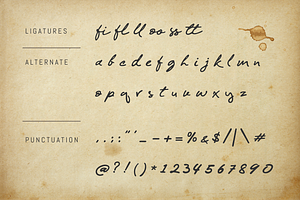 LIGATURES fi fl ll oo ss tt
ALTERNATE a b c d e f g h i j k l m n
o p q r s t u v w x y z
PUNCTUATION . , : ; " ' _ – - + = % & $ / | \ #
@ ? ! ( ) * 1 2 3 4 5 6 7 8 9 0